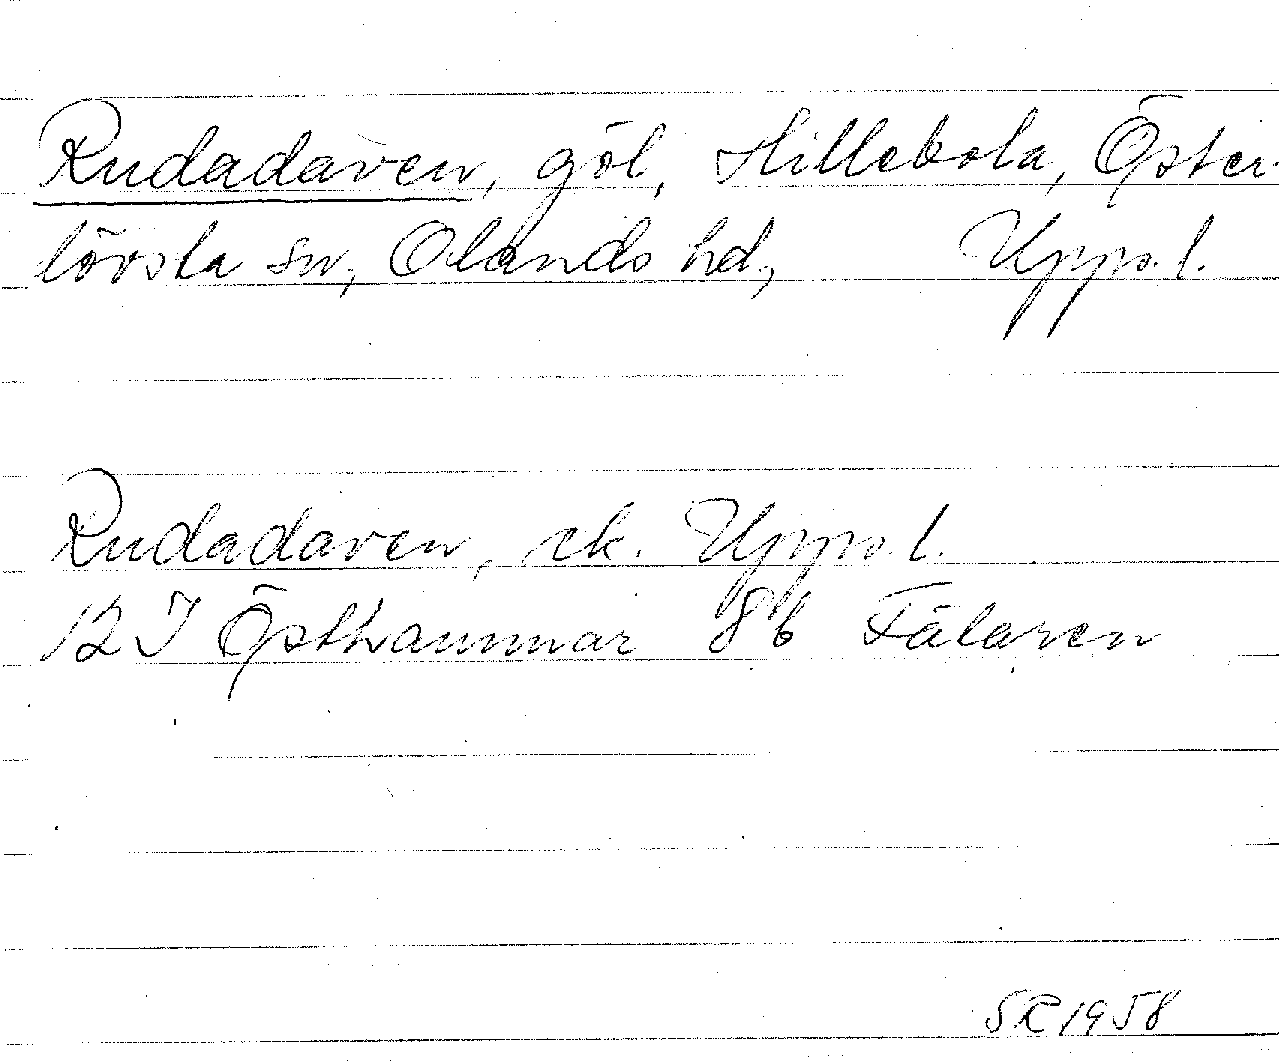 Rudadaven, göl, Hillebola, Öster-
lövsta sn, Olands hd, Upps. l.
Rudadaven, ek. Upps. l.
12 I Östhammar 8b Fälaren
SR 1958